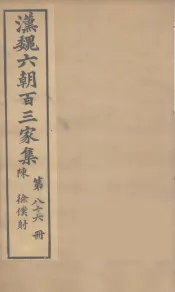 漢魏六朝百三家集
陳 徐僕射
第八十六冊